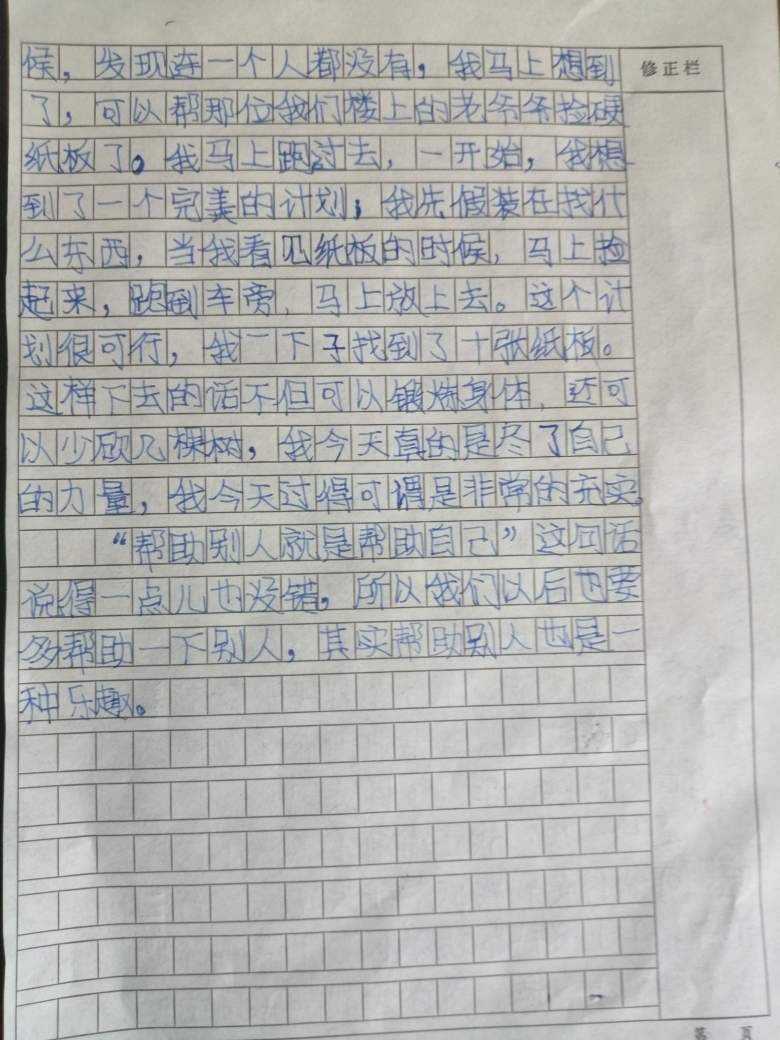 候，发现连一个人都没有，我马上想到
修正栏
了，可以帮那位我们楼上的老爷爷捡硬
纸板了。我马上跑过去，一开始，我想
到了一个完美的计划；我先假装在找什
么东西，当我看见纸板的时候，马上捡
起来，跑到车旁，马上放上去。这个计
划很可行，我一下子找到了十张纸板。
这样下去的话不但可以锻炼身体，还可
以少砍几棵树，我今天真的是尽了自己
的力量，我今天过得可谓是非常的充实。
“帮助别人就是帮助自己”这句话
说得一点儿也没错。所以我们以后也要
多帮助一下别人，其实帮助别人也是一
种乐趣。
第 页